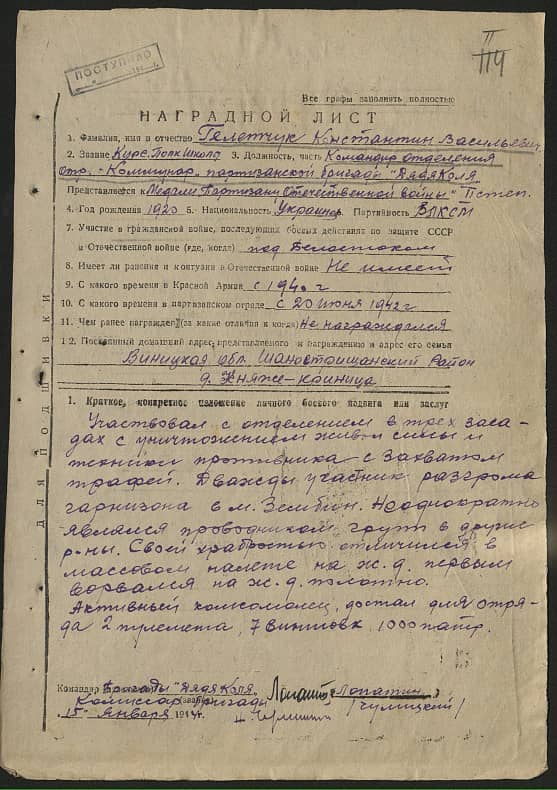 ПОСТУПИЛО
Все графы заполнять полностью
НАГРАДНОЙ ЛИСТ
1. Фамилия, имя и отчество Гелетчук Константин Васильевич
2. Звание Курс. Полк Школа 3. Должность, часть Командир отделения
отр. "Коммунар" партизанской бригады "Дядя Коля"
Представляется к Медали Партизану Отечественной войны" II степ.
4. Год рождения 1920 5. Национальность Украинец Партийность ВЛКСМ
7. Участие в гражданской войне, последующих боевых действиях по защите СССР
и Отечественной войне (где, когда) под Белостоком
8. Имеет ли ранения и контузии в Отечественной войне Не имеет
9. С какого времени в Красной Армии с 1940 г
10. С какого времени в партизанском отряде с 20 июня 1942 г
11. Чем ранее награжден (за какие отличия и когда) Не награждался
12. Постоянный домашний адрес представляемого к награждению и адрес его семьи
Виницкая обл. Район
д. Княже-Криница
ДЛЯ ПОДШИВКИ
I. Краткое, конкретное изложение личного боевого подвига или заслуг
Участвовал с отделением в трех заса-
дах с уничтожением живой силы и
техники противника с захватом
трафей. Дважды участник разгрома
гарнизона в м. Зембин. Неоднократно
являлся проводником групп в другие
р-ны. Своей храбростью отличился в
массовом налете на ж.д. первым
ворвался на ж.д. полотно.
Активный комсомолец, достал для отря-
да 2 пулемета, 7 винтовк, 1000 патр.
Командир Бригады "Дядя Коля" Лопатин /Лопатин/
Комиссар бригады /Чулицкий/
"15" Января 1944 г.